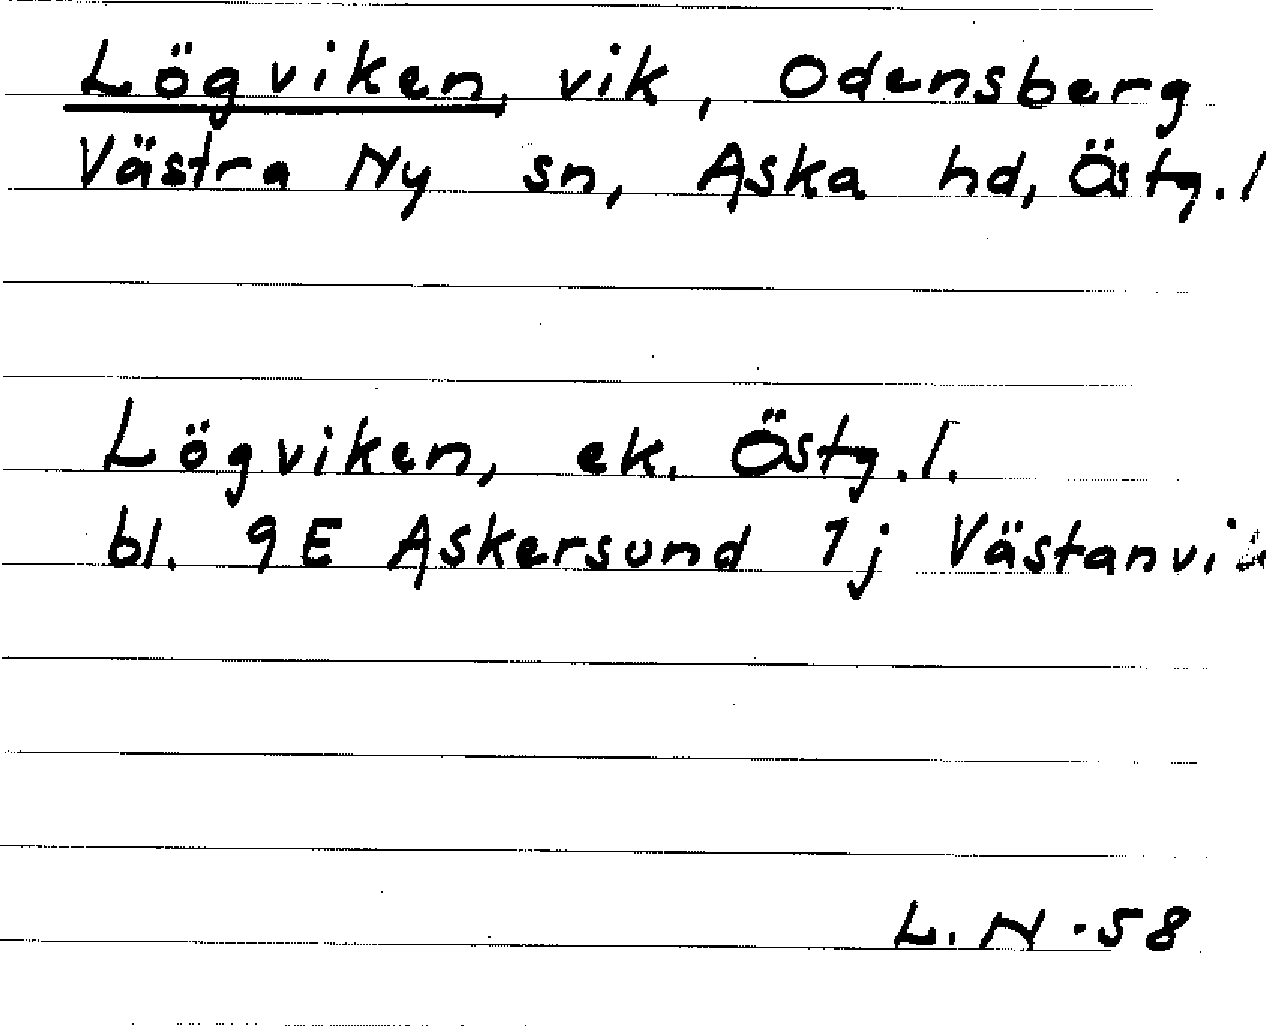 Lögviken, vik, Odensberg
Västra Ny sn, Aska hd, Östg.l
Lögviken, ek. Östg.l.
bl. 9E Askersund 1j Västanvik
L.N -58